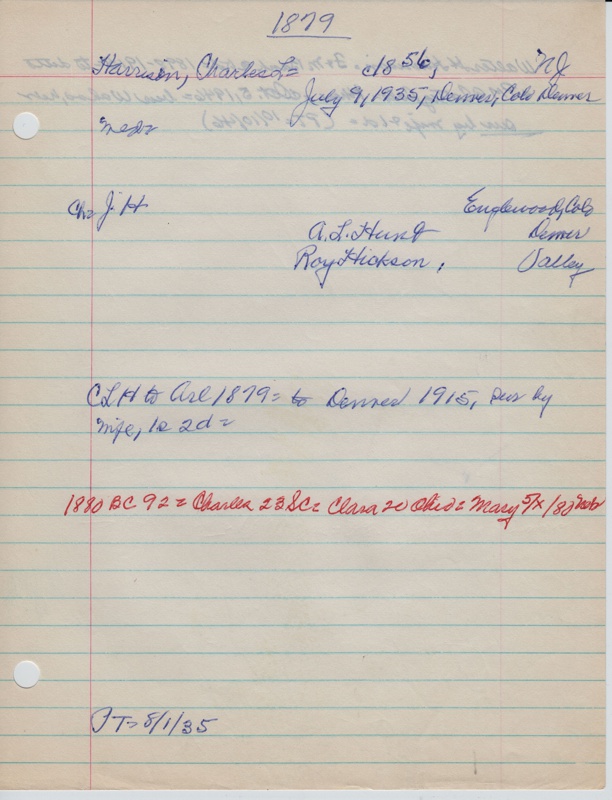 1879
Harrison, Charles L= c1856, NJ
July 9, 1935, Denver, Colo Denver
Ch= J. H Englewood, Colo
A. L. Hunt Denver
Roy Hickson, Valley
C L H to Arl 1879= to Denver 1915, sur by
wife, 1s 2d=
1880 BC 92= Charles 23 SC= Clara 20 Ohio= Mary 5/X/80 Neb
PT= 8/1/35